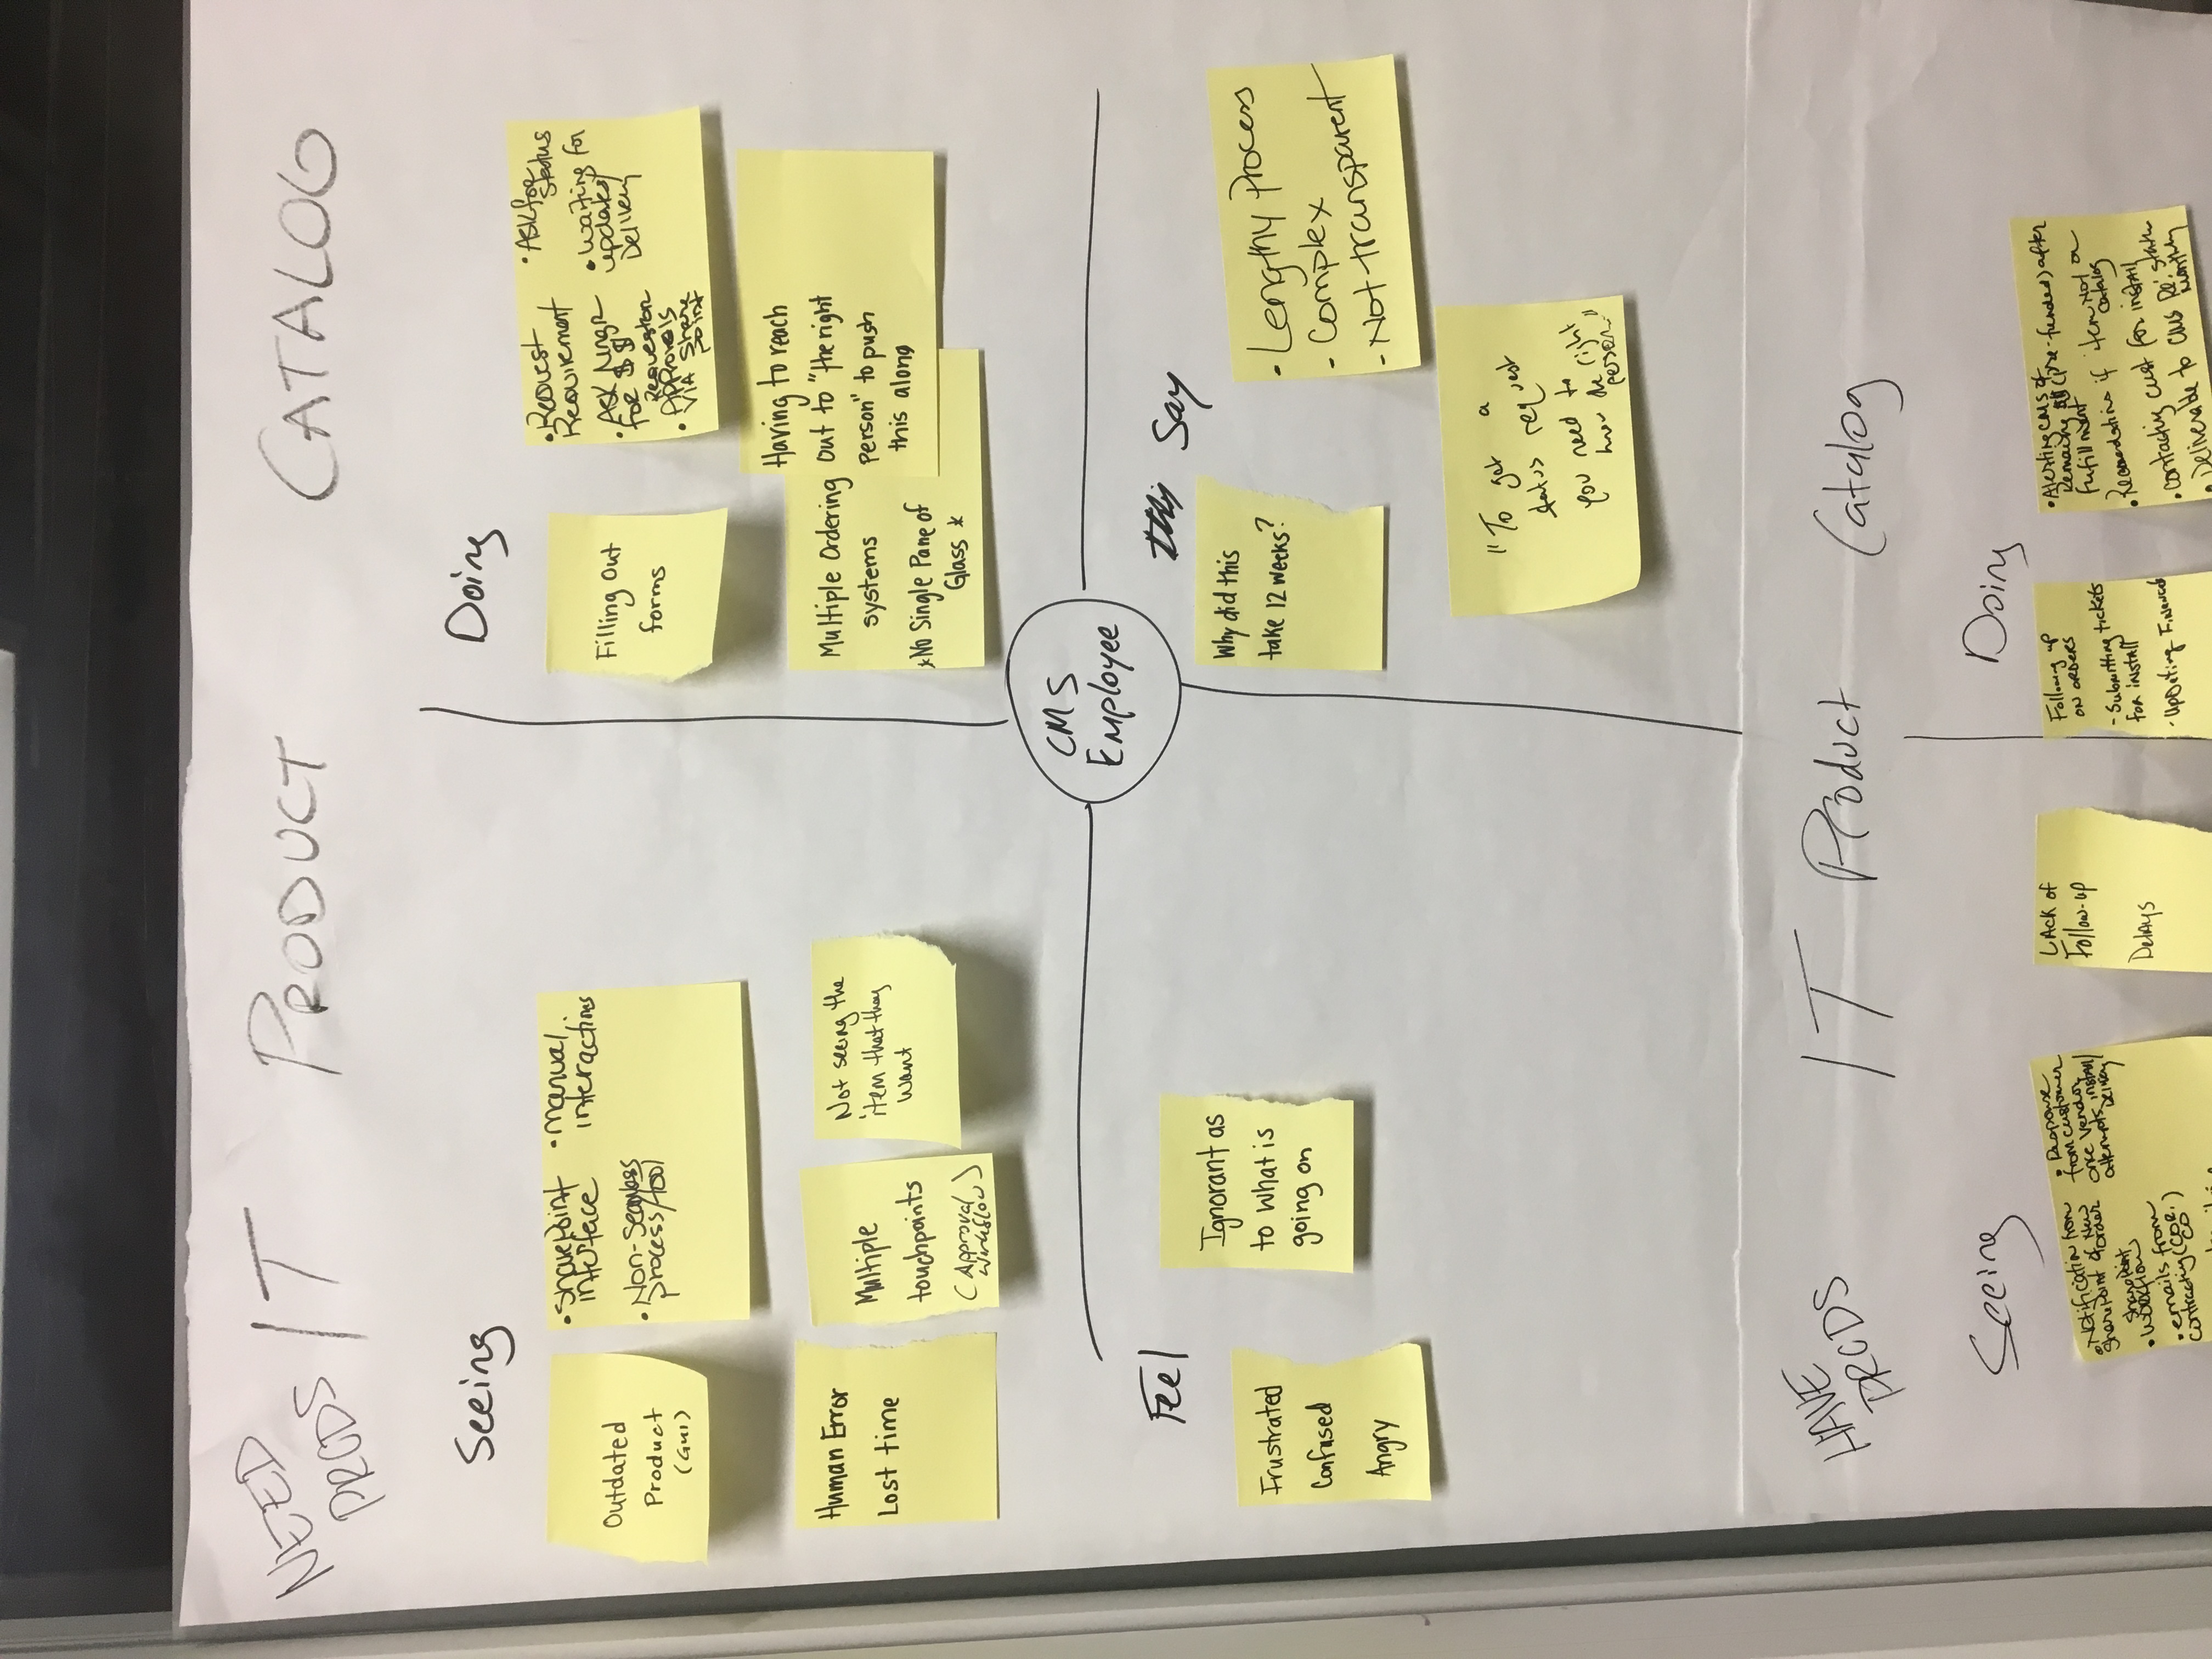 NEED
PRODS
IT PRODUCT CATALOG
Seeing
Outdated
Product
(GUI)
• SharePoint
interface
• Non-Seamless
process/tool
• Manual
interactions
Human Error
Lost time
Multiple
touchpoints
(Approval
Workflow)
Not seeing the
item that they
want
Doing
Filling Out
forms
• Request
Requirement
• Ask Mngr
for $$
Requestor
• Approvals
VIA Share
point
• Ask for
Status
• Waiting for
updates/
Delivery
Multiple Ordering
systems
*No Single Pane of
Glass *
Having to reach
out to "the right
person" to push
this along
CMS
Employee
Feel
Frustrated
Confused
Angry
Ignorant as
to what is
going on
Say
Why did this
take 12 weeks?
• Lengthy process
- Complex
- Not transparent
"To get a
status request
you need to
know the right
person"
HAVE
PRODS
IT Product Catalog
Seeing
• Notification from
SharePoint of New
order
SharePoint
• Workflow
• emails from
contracting (COR,
CO)
• Response
from customer
once Vendor
attempts install/
Delivery
Lack of
Follow-up
Delays
Doing
Following up
on orders
- Submitting tickets
for install
- Updating Financials
• Alerting CMS of
Remaing $$ (pre-funded) after
fufillment
if item not on
catalog
• contacting cust for install
• Deliverable to CMS
monthly